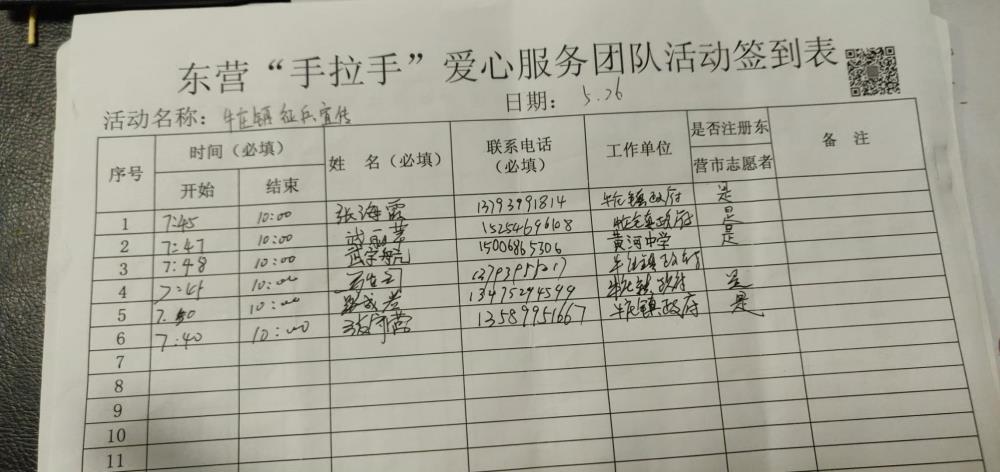 东营“手拉手”爱心服务团队活动签到表
活动名称：牛庄镇征兵宣传 日期：5.26
序号 时间（必填） 姓 名（必填） 联系电话（必填） 工作单位 是否注册东营市志愿者 备 注
开始 结束
1 7:45 10:00 张海霞 13793991814 牛庄镇政府 是
2 7:47 10:00 15254696108 牛庄镇政府 是
3 7:48 10:00 15006865306 黄河中学 是
4 10:00 牛庄镇政府
5 10:00 13475294599 牛庄镇政府 是
6 7:40 10:00 13589951667 牛庄镇政府 是
7
8
9
10
11